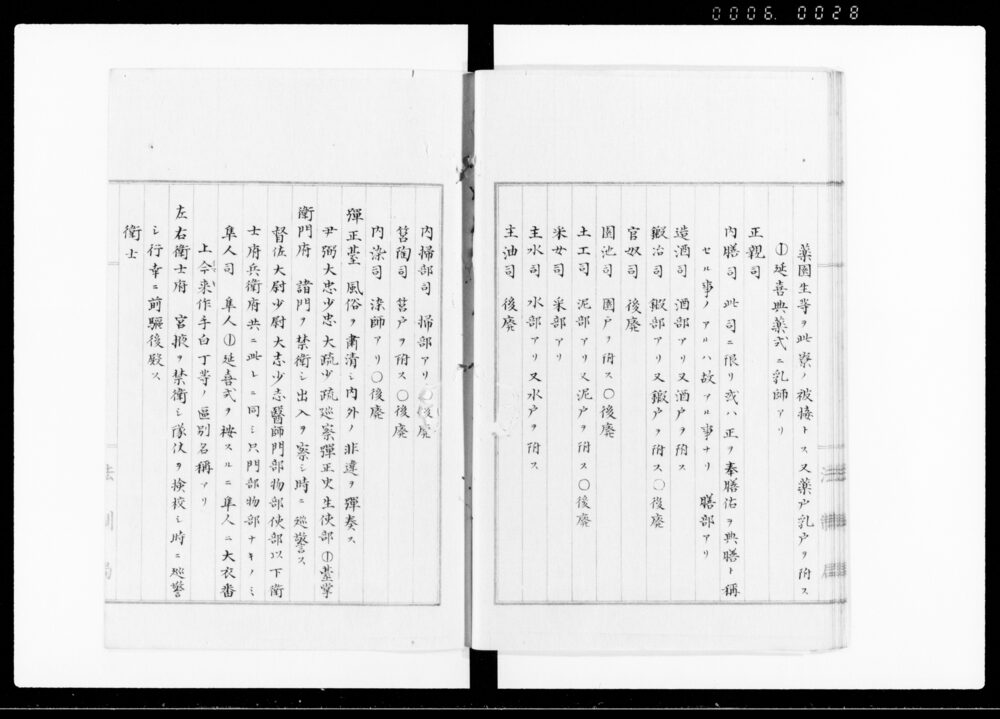 0006. 0028
薬園生等ヲ此寮ノ被接トス又薬戸乳戸ヲ附ス
①延喜典薬式ニ乳師アリ
正親司
内膳司 此司ニ限リ或ハ正ヲ奉膳佑ヲ典膳ト稱
セル事ノアルハ故アル事ナリ 膳部アリ
造酒司 酒部アリ又酒戸ヲ附ス
鍛冶司 鍛部アリ又鍛戸ヲ附ス〇後廢
官奴司 後廢
園池司 園戸ヲ附ス〇後廢
土工司 泥部アリ又泥戸ヲ附ス〇後廢
采女司 采部アリ
主水司 水部アリ又水戸ヲ附ス
主油司 後廢
内掃部司 掃部アリ〇後廢
筥陶司 筥戸ヲ附ス〇後廢
内染司 染師アリ〇後廢
彈正臺 風俗ヲ肅清シ内外ノ非違ヲ彈奏ス
尹弼大忠少忠大疏少疏巡察彈正史生使部①臺掌
衛門府 諸門ヲ禁衛シ出入ヲ察シ時ニ巡警ス
督佐大尉少尉大志少志醫師門部物部使部以下衛
士府兵衛府共ニ此レニ同シ只門部物部ナキノミ
隼人司 隼人①延喜式ヲ按スルニ隼人ニ大衣番
上今来作手白丁等ノ區別名稱アリ
左右衛士府 宮掖ヲ禁衛シ隊仗ヲ検校シ時ニ巡警
シ行幸ニ前驅後殿ス
衛士
法制局